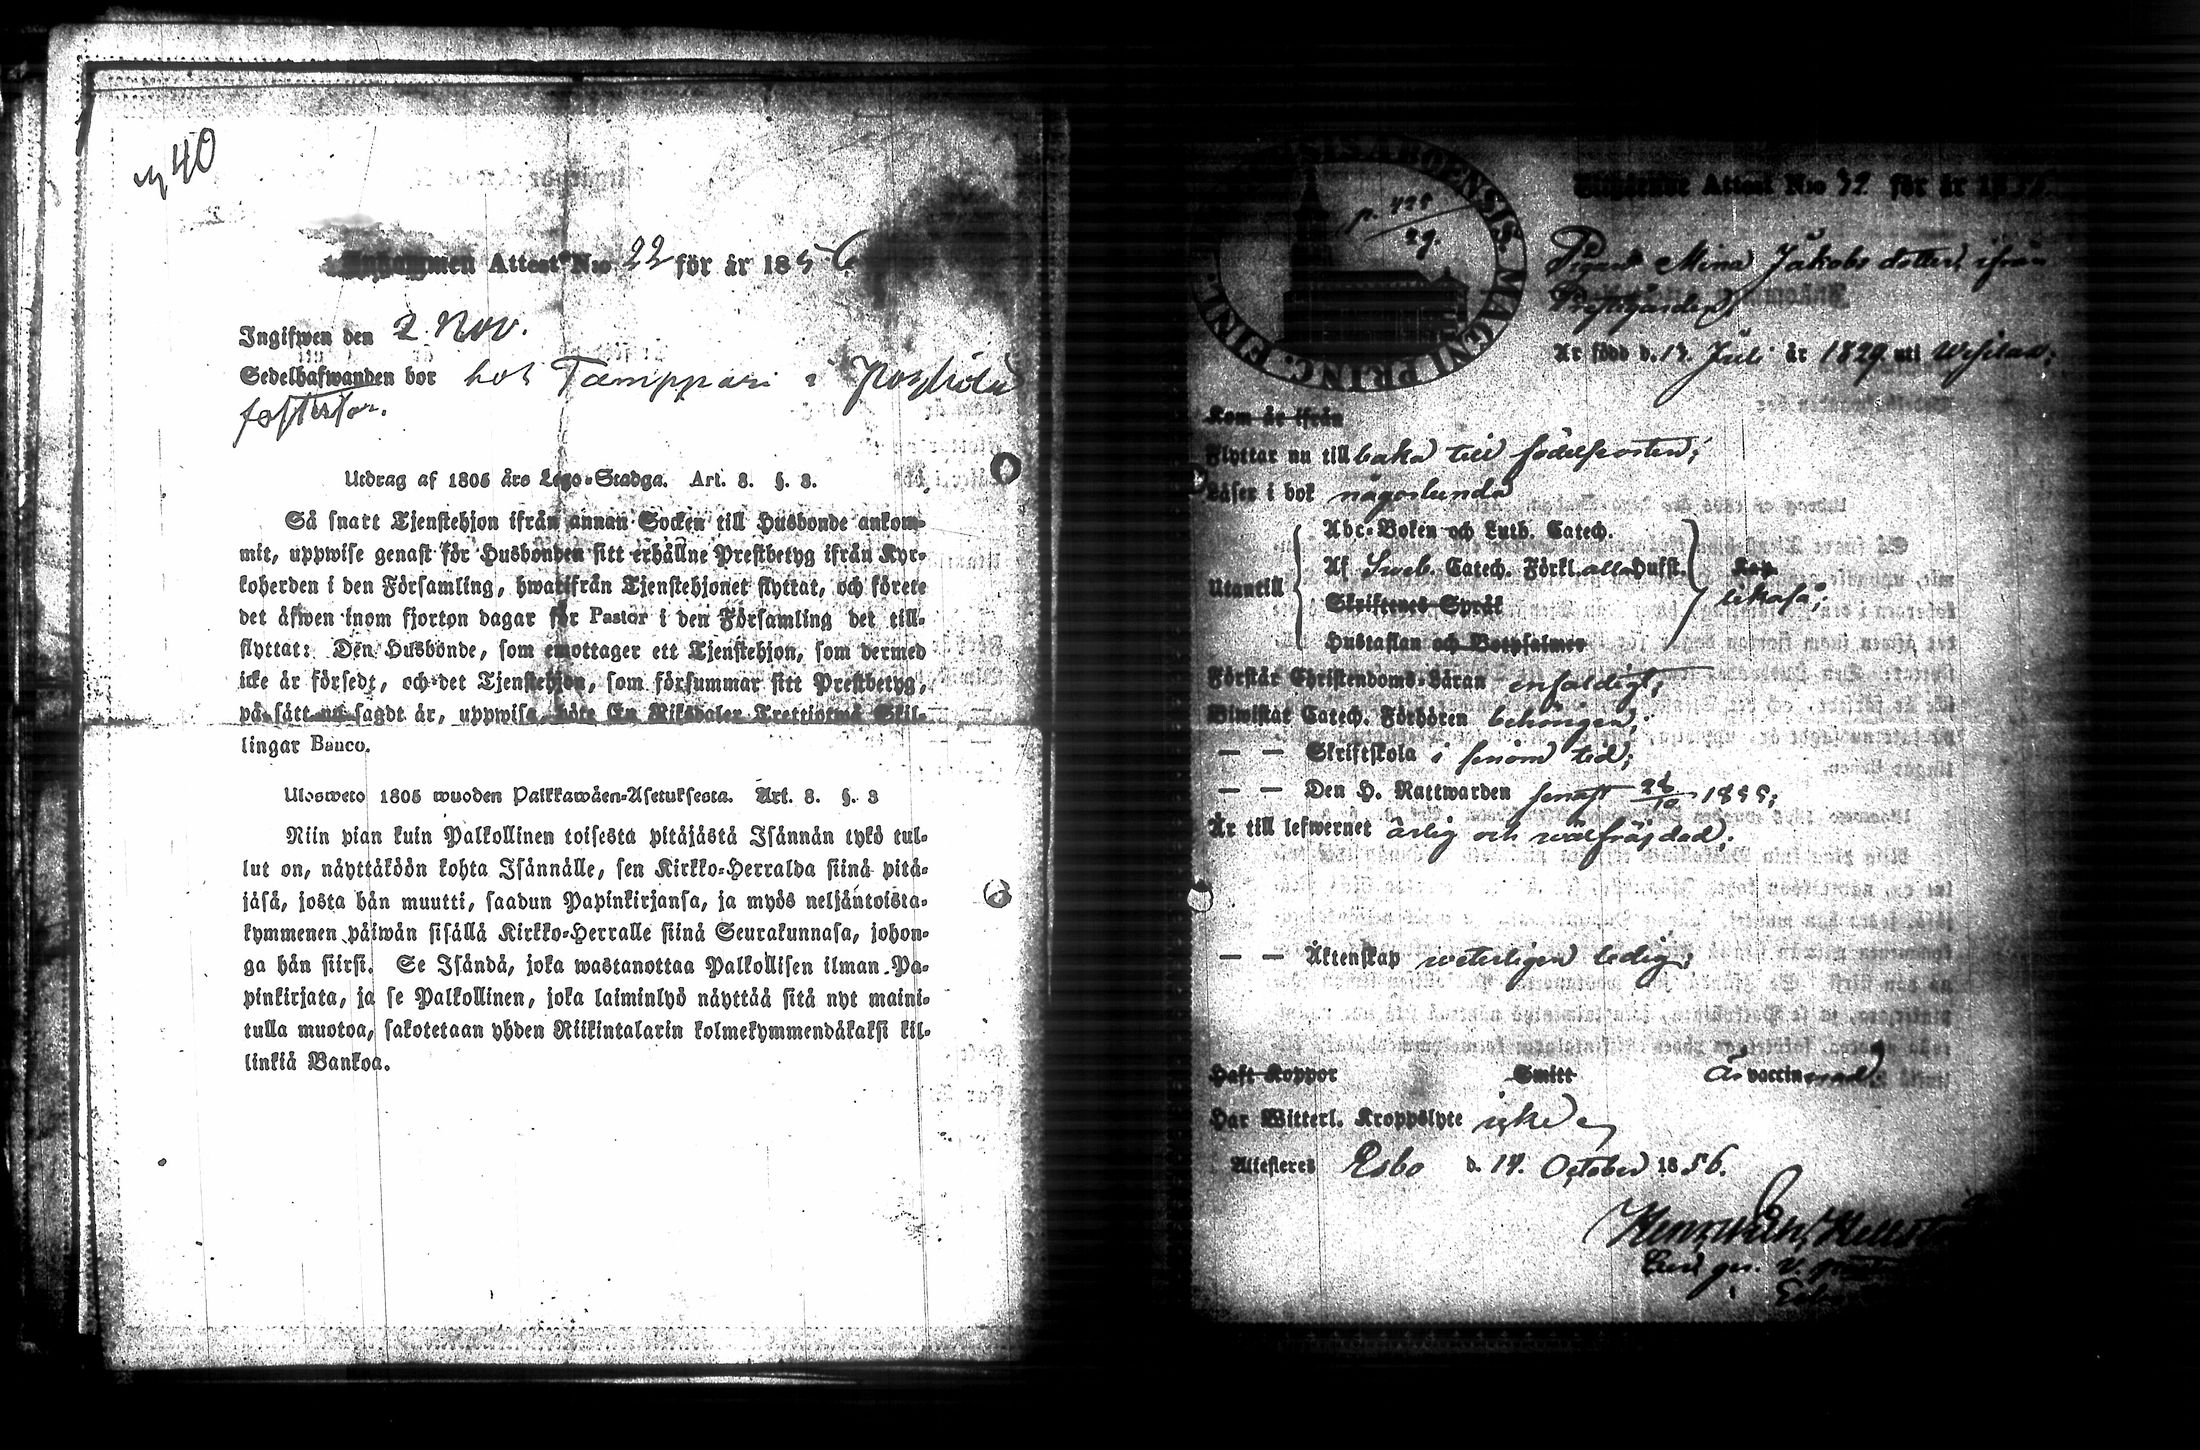 40
Inkommen Attest N:o 22 för år 1856
Ingifwen den 2 Nov.
Sedelhafwanden bor hos Tamppari i
Utdrag af 1805 års Lego-Stadga. Art. 8. §. 8.
Så snart Tjenstehjon ifrån annan Socken till Husbonde ankom-
mit, uppwise genast för Husbonden sitt erhållne Prestbetyg ifrån Kyr-
koherden i den Församling, hwarifrån Tjenstehjonet flyttat, och förete
det äfwen inom fjorton dagar för Pastor i den Församling det till-
flyttat: Den Husbonde, som emottager ett Tjenstehjon, som dermed
icke är försedt, och det Tjenstehjon, som försummar sitt Prestbetyg,
på sätt nu sagdt är, uppwisa, böte En Riksdaler Trettiotwå Skil-
lingar Banco.
Ulosweto 1805 wuoden Palkkawäen-Asetuksesta. Art. 8. §. 8
Niin pian kuin Palkollinen toisesta pitäjästä Isännän tykö tul-
lut on, näyttäköön kohta Isännälle, sen Kirkko-Herralda siinä pitä-
jäsä, josta hän muutti, saadun Papinkirjansa, ja myös neljäntoista-
kymmenen päiwän sisällä Kirkko-Herralle siinä Seurakunnasa, johon-
ga hän siirsi. Se Isändä, joka wastanottaa Palkollisen ilman Pa-
pinkirjata, ja se Palkollinen, joka laiminlyö näyttää sitä nyt maini-
tulla muotoa, sakotetaan yhden Riikintalarin kolmekymmendäkaksi kil-
linkiä Bankoa.
ABOENSIS. MAGNI PRINC. FINL.
p. 29.
Utgående Attest N:o 32 för år 1856
Pigan Mina Jakobs dotter, ifrån
Prestgården,
Är född d. 13. Juli år 1829 uti
Kom år ifrån
Flyttar nu tillbaka till födelseorten;
Läser i bok någorlunda
Utantill
Abc-Boken och Luth. Catech.
Af Sweb. Catech. Förkl. alla Hufst.
Skriftenes Språk
Hustaflan och Botpsalmer
likaså;
Förstår Christendoms-Läran enfaldigt;
Biwistat Catech. Förhören behörigen;
— — Skriftskola i sinom tid;
— — Den H. Nattwarden senast 26/10 1855;
Är till lefwernet ärlig och wälfräjdad;
— — Äktenskap weterligen ledig;
Haft Koppor Smitt Är vaccinerad;
Har Witterl. Kroppslyte icke
Attesteras Esbo d. 14. October 1856.